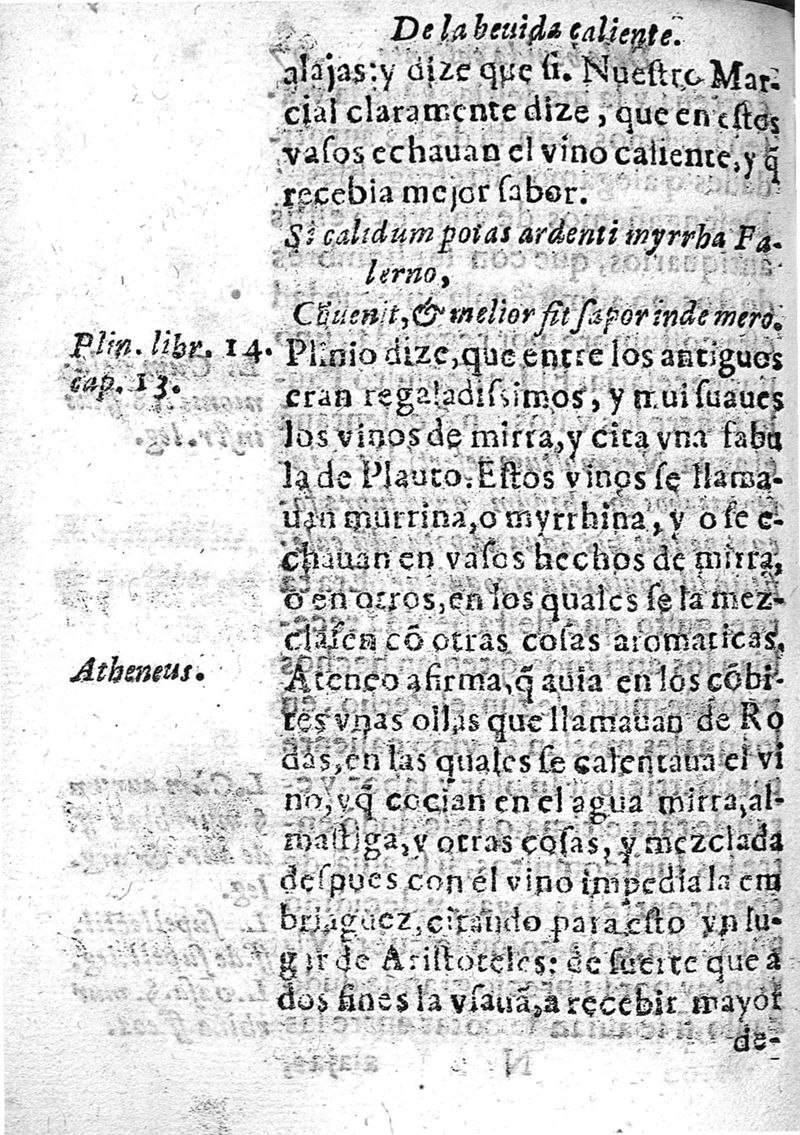 De la beuida caliente.
alajas: y dize que si. Nuestro Mar-
cial claramente dize, que en estos
vasos echauan el vino caliente, y q̃
recebia mejor sabor.
Si calidum potas ardenti myrrha Fa-
lerno,
Cõuenit, & melior fit sapor inde mero.
Plin. libr. 14.
cap. 13.
Plinio dize, que entre los antiguos
eran regaladissimos, y mui suaues
los vinos de mirra, y cita vna fabu
la de Plauto. Estos vinos se llama-
uan murrina, o myrrhina, y o se e-
chauan en vasos hechos de mirra,
o en otros, en los quales se la mez-
classen cõ otras cosas aromaticas.
Atheneus.
Ateneo afirma, q̃ auia en los cõbi-
tes vnas ollas que llamauan de Ro
das, en las quales se calentaua el vi
no, y q̃ cocian en el agua mirra, al-
mastiga, y otras cosas, y mezclada
despues con el vino impedia la em
briaguez, citando para esto vn lu-
gar de Aristoteles: de suerte que a
dos fines la vsauã, a recebir mayor
de-